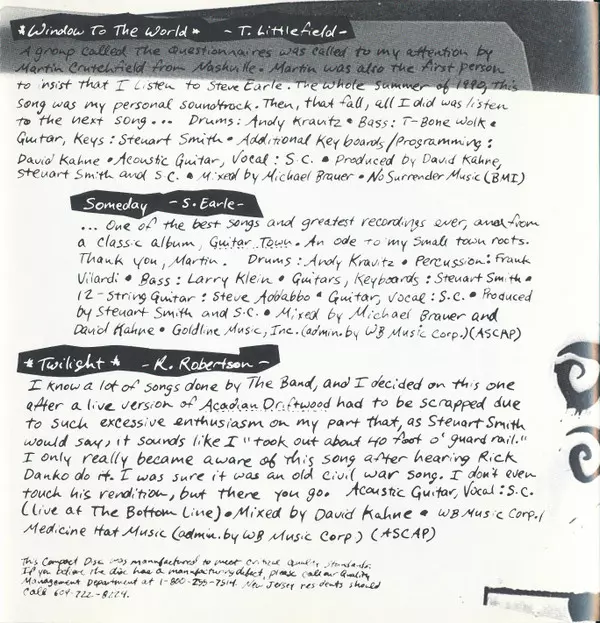 *Window To The World* - T. Littlefield -
A group called The Questionnaires was called to my attention by
Martin Crutchfield from Nashville. Martin was also the first person
to insist that I listen to Steve Earle. The whole summer of 1990, this
song was my personal soundtrack. Then, that fall, all I did was listen
to the next song... Drums: Andy Kravitz • Bass: T-Bone Wolk •
Guitar, Keys: Steuart Smith • Additional Keyboards/Programming:
David Kahne • Acoustic Guitar, Vocal: S.C. • Produced by David Kahne,
Steuart Smith and S.C. • Mixed by Michael Brauer • No Surrender Music (BMI)
Someday - S. Earle -
... One of the best songs and greatest recordings ever, and from
a classic album, Guitar Town. An ode to my small town roots.
Thank you, Martin. Drums: Andy Kravitz • Percussion: Frank
Vilardi • Bass: Larry Klein • Guitars, Keyboards: Steuart Smith •
12-String Guitar: Steve Addabbo • Guitar, Vocal: S.C. • Produced
by Steuart Smith and S.C. • Mixed by Michael Brauer and
David Kahne • Goldline Music, Inc. (admin. by WB Music Corp.) (ASCAP)
*Twilight* - R. Robertson -
I know a lot of songs done by The Band, and I decided on this one
after a live version of Acadian Driftwood had to be scrapped due
to such excessive enthusiasm on my part that, as Steuart Smith
would say, it sounds like I "took out about 40 foot o' guard rail."
I only really became aware of this song after hearing Rick
Danko do it. I was sure it was an old civil war song. I don't even
touch his rendition, but there you go. Acoustic Guitar, Vocal: S.C.
(live at The Bottom Line) • Mixed by David Kahne • WB Music Corp./
Medicine Hat Music (admin. by WB Music Corp) (ASCAP)
This Compact Disc was manufactured to meet critical quality standards.
If you believe the disc has a manufacturing defect, please call our Quality
Management Department at 1-800-255-7514. New Jersey residents should
call 609-722-8224.